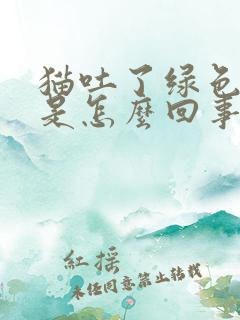 猫吐了绿色
是怎麼回事
紅摇
未经同意禁止转载